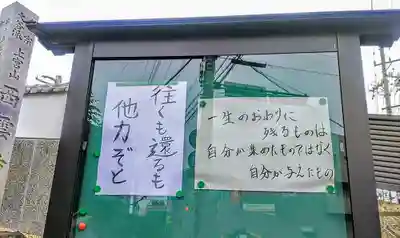 往くも還るも
他力ぞと
一生のおわりに
残るものは
自分が集めたものではなく
自分が与えたもの